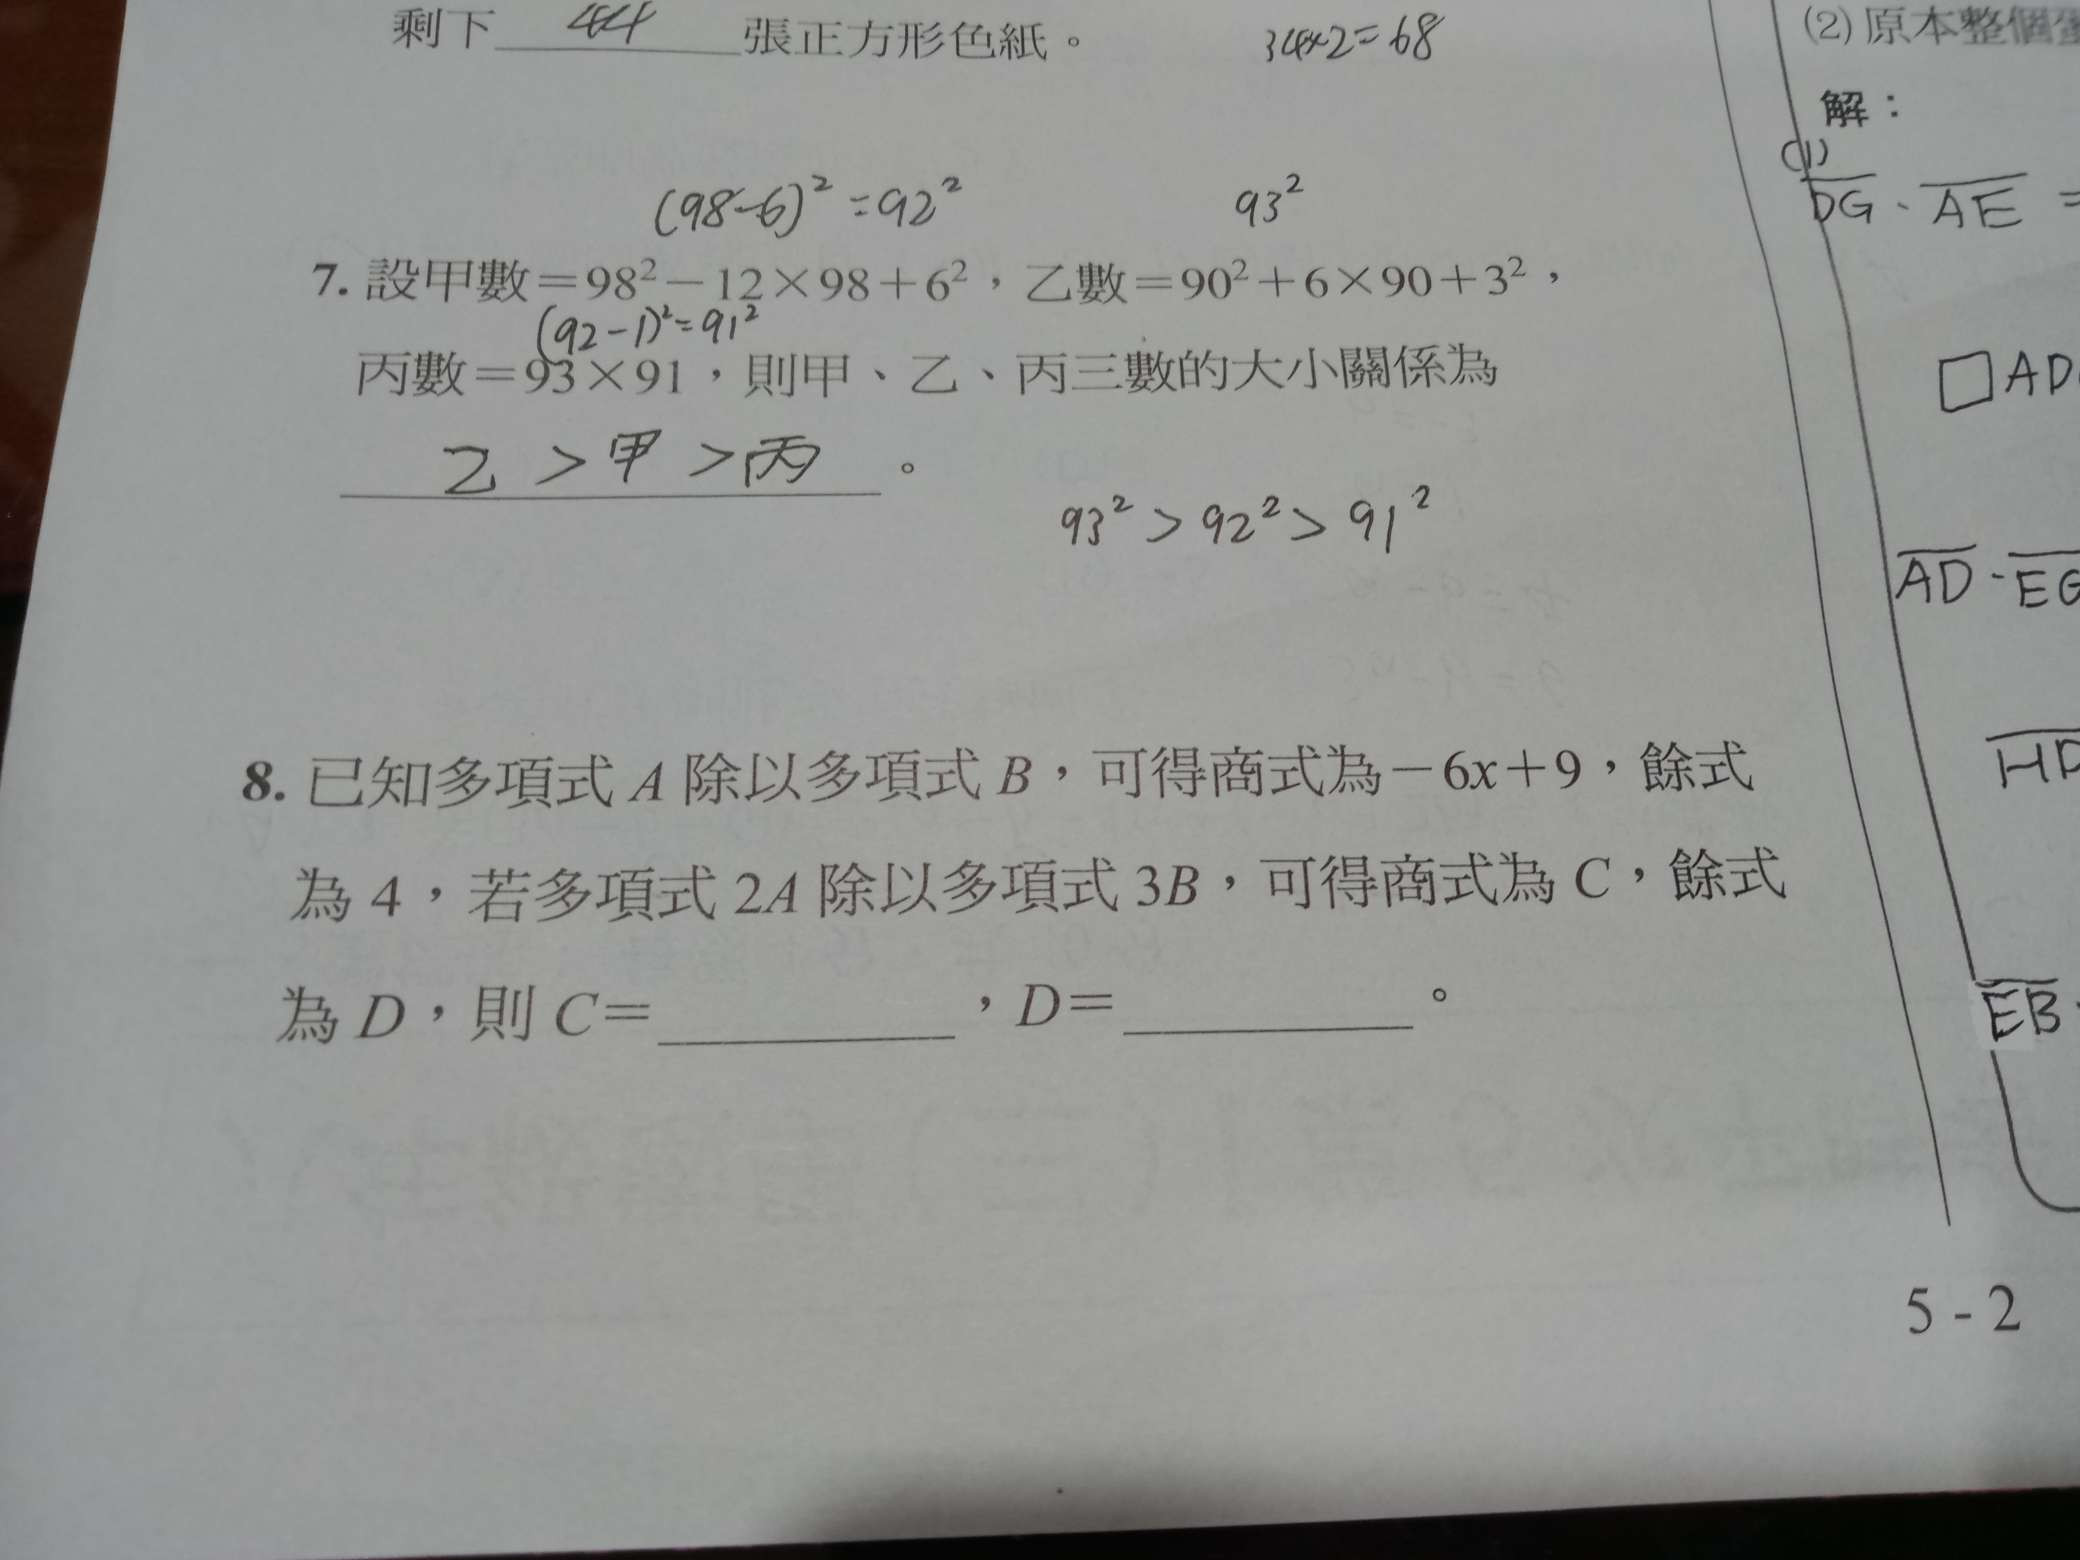 剩下 44 張正方形色紙。
34×2=68
(98-6)²=92²
93²
7. 設甲數=98²-12×98+6²,乙數=90²+6×90+3²,
(92-1)²=91²
丙數=93×91,則甲、乙、丙三數的大小關係為
乙>甲>丙。
93²>92²>91²
8. 已知多項式 A 除以多項式 B,可得商式為-6x+9,餘式
為 4,若多項式 2A 除以多項式 3B,可得商式為 C,餘式
為 D,則 C=__________,D=__________。
(2) 原本整個
解:
(1)
DG · AE =
□AD
AD · EG
HD
EB
5-2